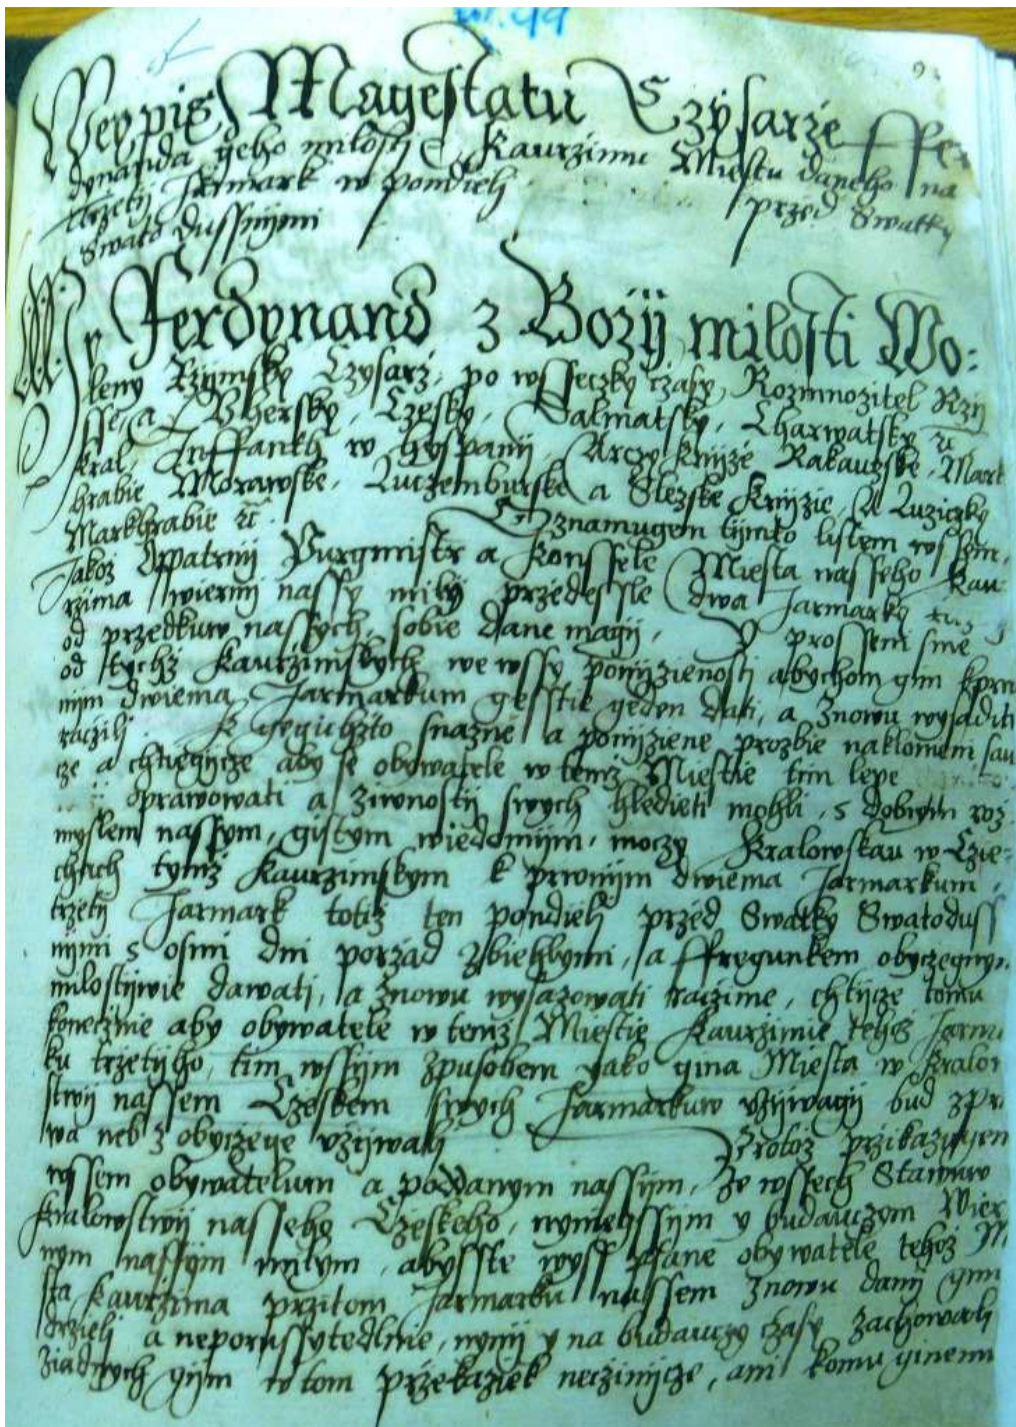 93
Weypis Magestatu Czysarže Ffer
dynanda geho milosti Kaurzimu Miestu daneho na
trzetij Jarmark w pondielj przed Swatky
Swato dussnijmi
My Ferdynand z Boži milosti Wo:
leny Rzijmsky Czysarž, po wsseczky čzasy, Rozmnožitel Rzij
sse, a Uhersky, Czesky, Dalmatsky, Charwatsky
kral, Inffankh w Hyspanij, Arczy Knijže Rakauzske, Mark
hrabie Morawske, Luczemburske a Slezske Knijže, a Luziczky
Markhrabie Oznamugem tijmto listem wssem,
Jakož Opatrnij Purgmistr a Konssele Miesta nasseho Kau
rzima wiernij nassy milij przedessle dwa Jarmarky
od przedkuw nassych sobie dane magij, Y prosseni sme
od tychž Kaurzimskych we wssy ponijženosti abychom gim kprw
nijm dwiema Jarmarkum gesstie geden dati, a znowu wysaditi
raczili. K gegichžto snažne a ponijžene prozbie naklonieni sau
cze a chtiegicze aby se obywatele w temž Miestie tim lepe
oprawowati a žiwnostij swych hledieti mohli, s dobrym roz
myslem nassym, gistym wiedomijm, moczy Kralowskau w Cze:
chach tymž Kaurzimskym k prwnijm dwiema Jarmarkum,
trzetij Jarmark totiž ten pondielj przed Swatky Swatoduss
nijmi s osmi dni porzad zbiehlymi, a ffregunkem obyczegnym
milostijwie dawati, a znowu wysazowati raczime, chtijcze tomu
konecznie aby obywatele w temž Miestie Kaurzimie tehož Jarmar
ku trzetijho, tim wssijm zpusobem yako gina Miesta w Kralow
stwij nassem Czeskem swych Jarmarkuw užijwagij bud z pra
wa neb z obyczege užijwali Protož przikazugem
wssem obywatelum a poddanym nassijm, ze wssech Stawuw
Kralowstwij nasseho Czeskeho, nyniegssijm y budauczym Wier
nym nassijm milym, abysste wyss psane obywatele tehož Mie
sta Kaurzima przitom Jarmarku nassem znowu danij gim
drželj a neporussytedlnie, nynij y na budauczy čzasy zachowali
žiadnych gijm w tom przekažiek neczinijcze, ani komu ginemu